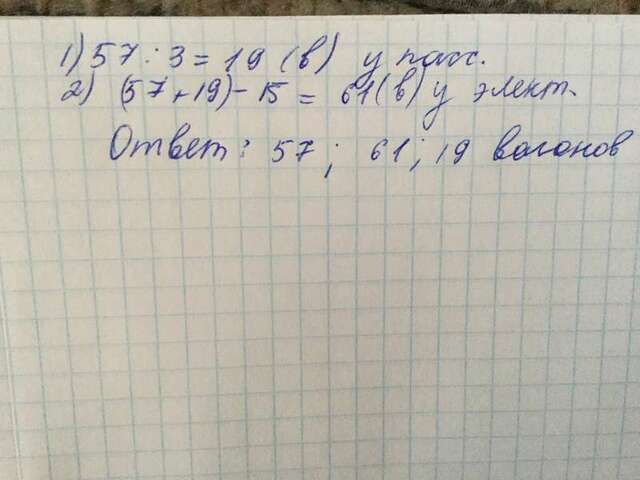 1) 57 : 3 = 19 (в) у пасс.
2) (57 + 19) - 15 = 61 (в) у элект.
Ответ : 57 ; 61 ; 19 вагонов